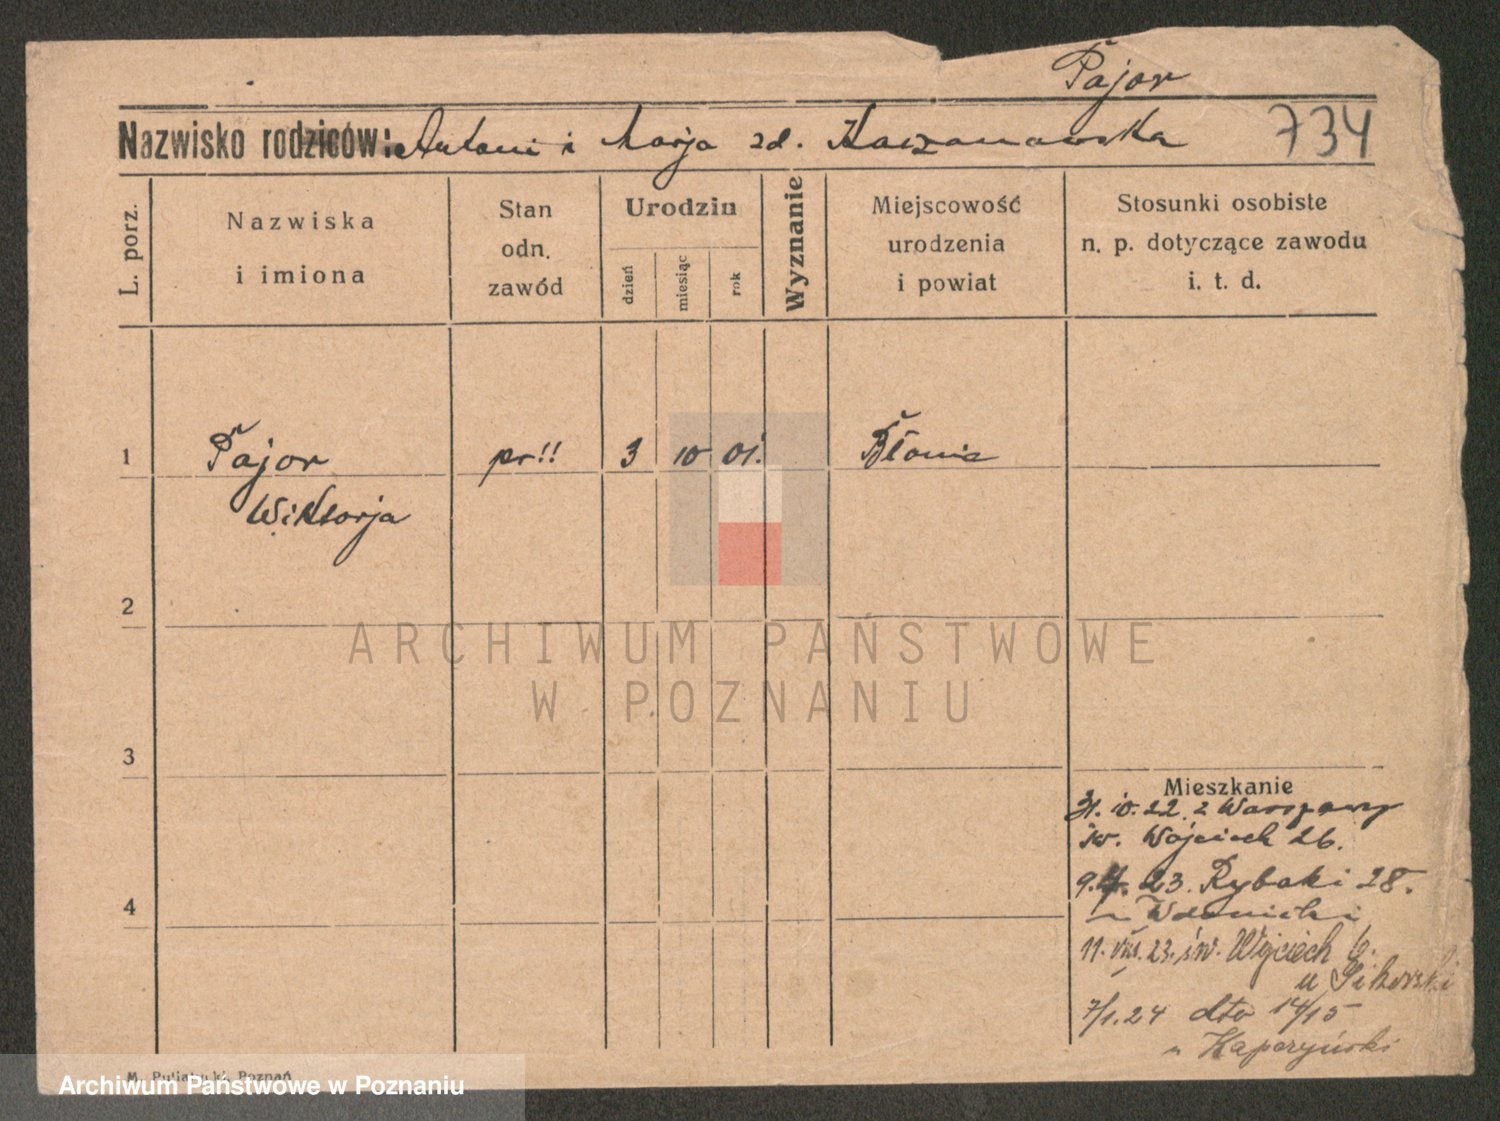 Pajor
Nazwisko rodziców: Antoni i Marja zd. Kaczanowska 734
L. porz.
Nazwiska i imiona
Stan odn. zawód
Urodziu
dzień
miesiąc
rok
Wyznanie
Miejscowość urodzenia i powiat
Stosunki osobiste n. p. dotyczące zawodu i. t. d.
1 Pajor pr!! 3 10 01. Błonie
Wiktorja
2
ARCHIWUM PAŃSTWOWE
W POZNANIU
3
Mieszkanie
31. 10. 22. z Warszawy
św. Wojciech 26.
4
23. Rybaki 28.
11. VIII. 23. św. Wojciech 6.
u Sikorski
7/1. 24 dto 14/15
u Kaperzyński
M. Putiatycki, Poznań
Archiwum Państwowe w Poznaniu